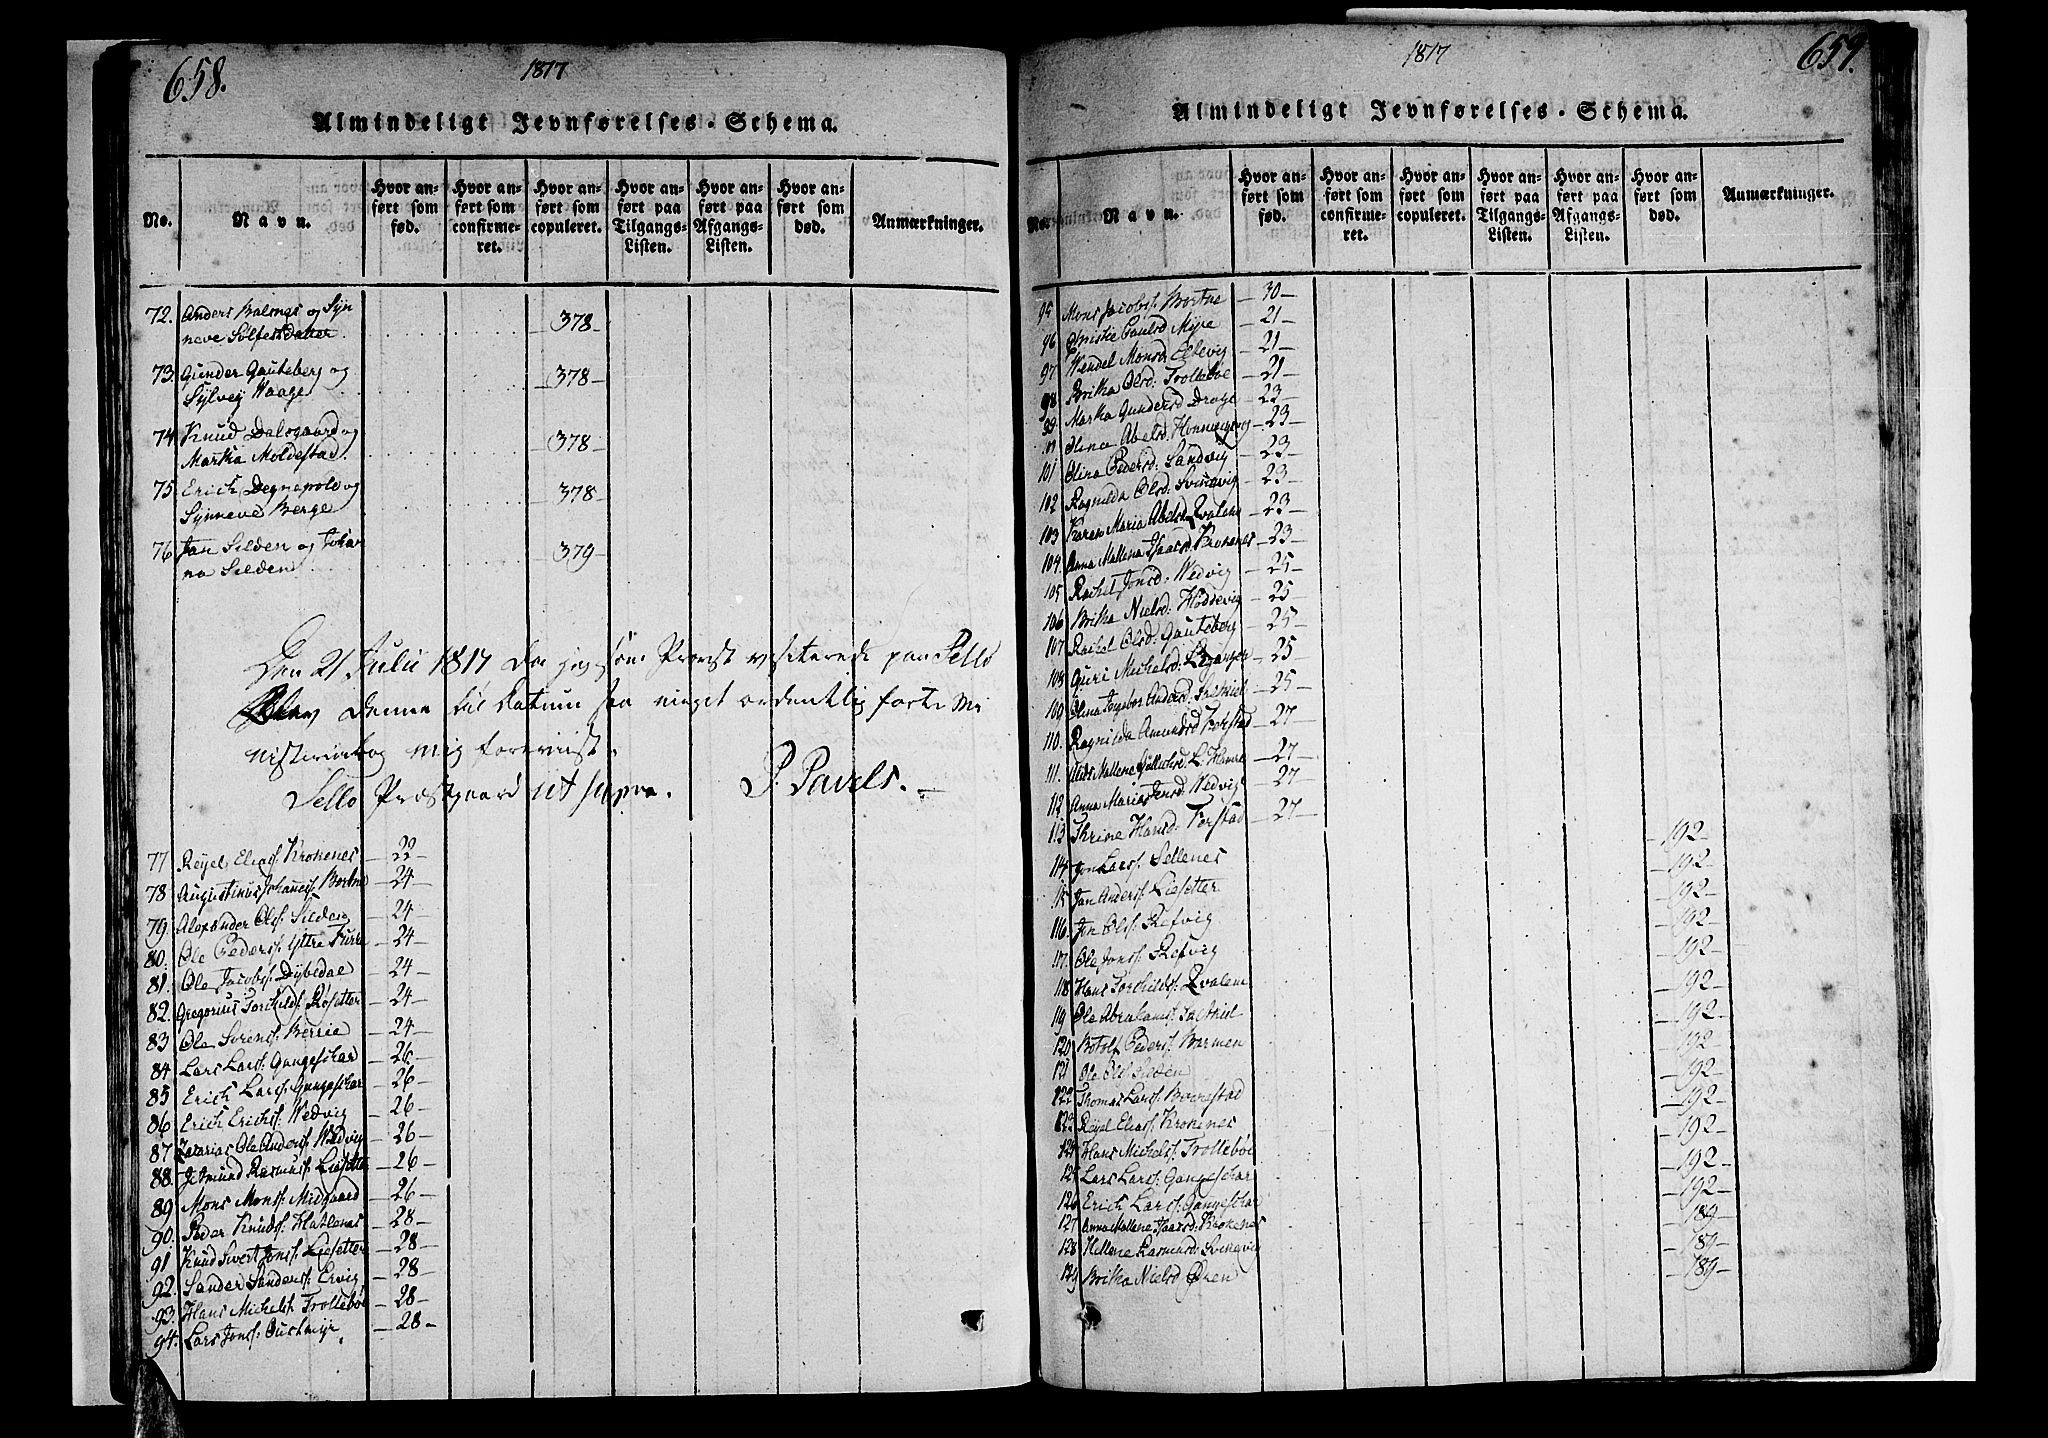 658.
1817
Almindeligt Jevnførelses-Schema.
No.
Navn.
Hvor anført som fød.
Hvor anført som confirmeret.
Hvor anført som copuleret.
Hvor anført paa Tilgangs-Listen.
Hvor anført paa Afgangs-Listen.
Hvor anført som død.
Anmærkninger.
72. Anders Balsnes og Syn
neve Solfestdatter. 378
73. Gunder Gauteberg og
Sylvej Haage 378
74. Knud Dalsgaard og
Martha Moldestad. 378
75. Erich Degnepold og
Synneve Berge 378
76. Jan Silden og Johan
na Silden 379
Den 21 Julii 1817 da jeg som Provst visiterede paa Sello
blev denne til Datum saa meget ordentlig førte Mi
nisterialbog mig foreviist.
Sello Præstgaard ut supra. P. Pavels.
77 Reyel Eliass: Krokenes 22
78 Augustinus Johanness: Bortne 24
79 Alexander Ols: Silden 24
80. Ole Peders: Yttre Furre 24
81. Ole Jacobs: Dybedal 24
82. Gregorius Torchilds: Røsetter 24
83 Ole Sørens: Berrie 24
84 Lars Lars: Gangeschar 26
85 Erich Lars: Gangeschar 26
86 Erich Erichs: Wedvig 26
87 Zacarias Ole Anders: Wedvig 26
88. Jetmund Rasmus: Liesetter 26
89 Mons Mons: Midgaard 26
90. Peder Knuds: Hatlenes 28
91 Knud Sivert Jons: Liesetter 28
92. Sander Sanders: Ervig 28
93. Hans Michels: Trollebøe 28
94. Lars Jons: Oustmyr 28
659.
1817
Almindeligt Jevnførelses-Schema.
No.
Navn.
Hvor anført som fød.
Hvor anført som confirmeret.
Hvor anført som copuleret.
Hvor anført paa Tilgangs-Listen.
Hvor anført paa Afgangs-Listen.
Hvor anført som død.
Anmærkninger.
95 Mons Jacobs: Bortne 30
96 Christie Paulsd Myre 21
97 Wendel Monsd: Eltevig 21
98 Britha Olsd: Trolleboe 21
99 Martha Gundersd Drage 23
Olina Abelsd: Honnevigsvog 23
101 Olina Pedersd: Sandvig 23
102 Ragnilda Olsd: Svinevig 23
103 Karen Maria Abelsd Qvalem 23
104. Anna Mallena Isaacsd Krokenes 23
105 Rachel Jonsd: Wedvig 25
106 Britha Nielsd: Hoddevig 25
107 Rachel Olsd: Gauteberg 25
108 Guri Michelsd: Leganger 25
109 Olina Ingebor Andersd: 25
110. Ragnilda Amundsd Torstad 27
111. Mallene L: Hamre 27
112 Anna Maria Jensd: Wedvig 27
113 Thrine Hansd: Torstad 27
114 Jon Lars: Sellenes 192
115 Jan Anders: Liesetter 192
116. Jon Ols: Refvig 192
117. Ole Jons: Refvig 192
118 Hans Torchilds: Qvalem 192
119 Ole Abrahams: Satrid 192
120 Botolf Peders: Barmen 192
121 Ole Ols: Silden 192
122 Thomas Lars: Borrestad 192
123 Reyel Elias: Krokenes 192
124 Hans Michels: Trollebøe 192
125 Lars Lars: Gangeschar 192
126 Erich Lars: Gangeschar 192
127 Anna Mallene Isaacsd: Krokenes 189
128 Hellene Rasmusd: Svinevig 189
129 Britha Nielsd Øren 189